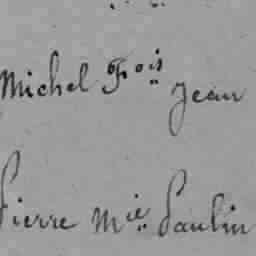 Michel Fois Jean
Pierre Mie Paulin